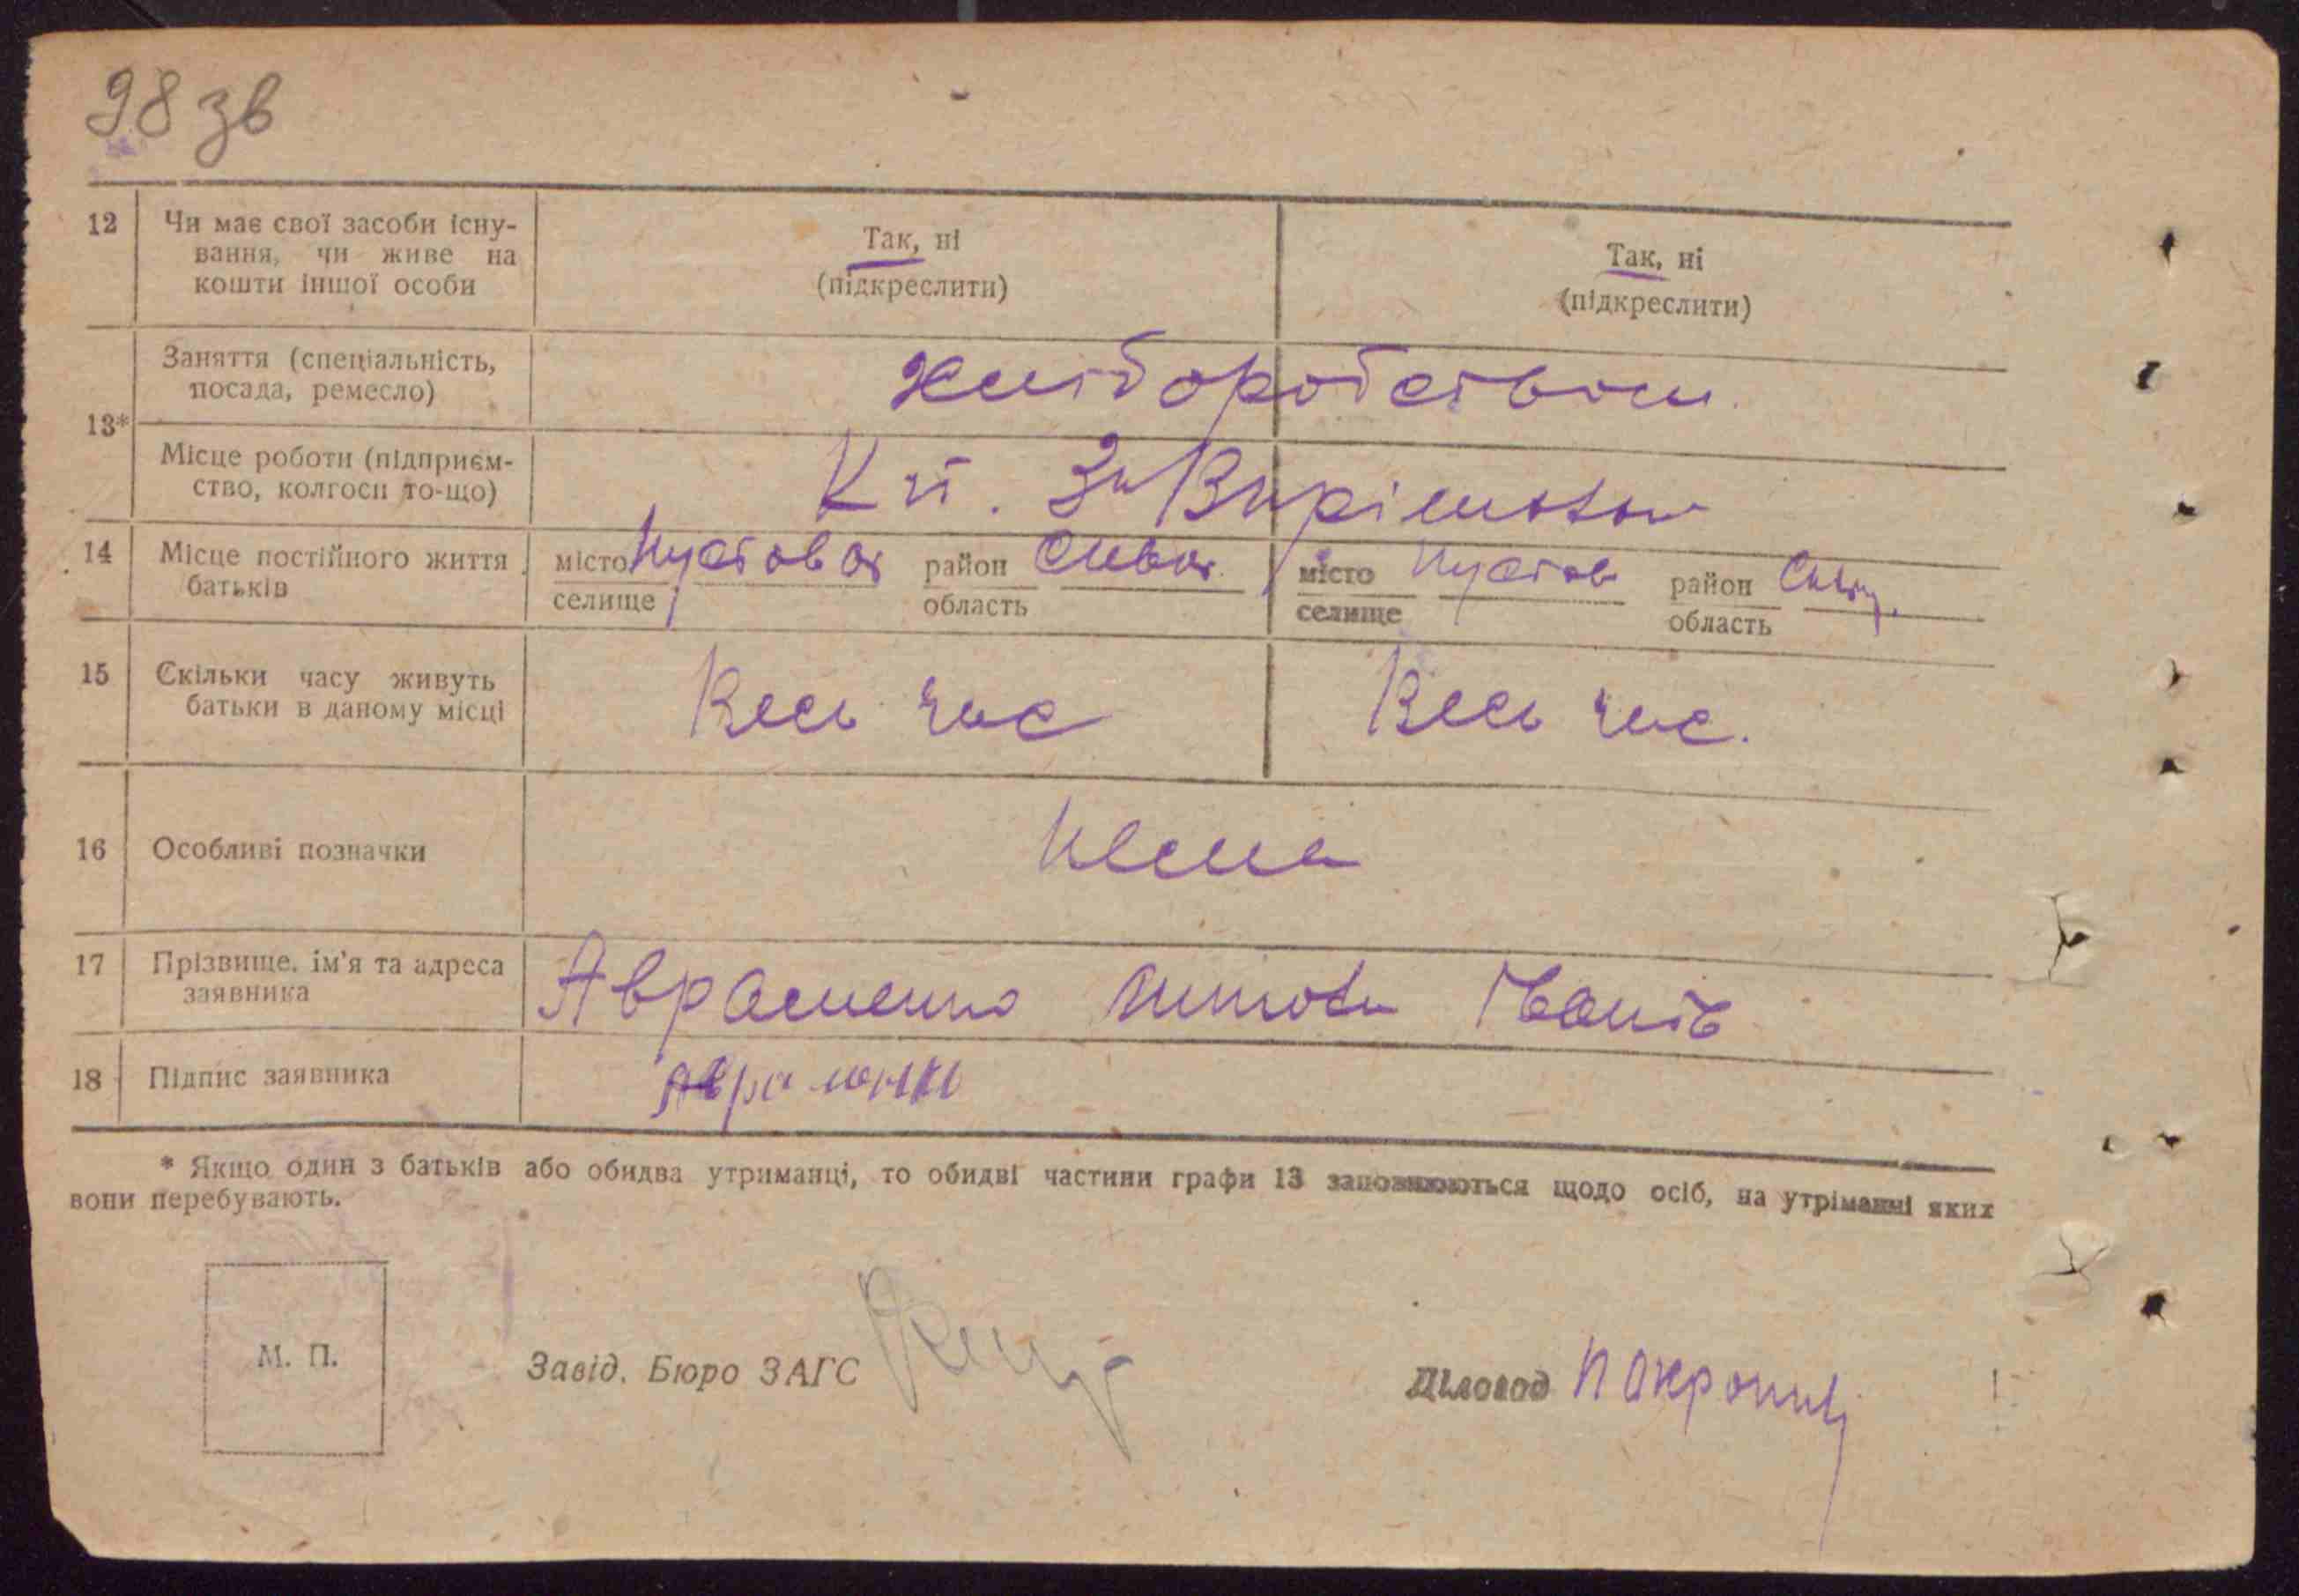 98 зв
12 Чи має свої засоби існу-
вання, чи живе на
кошти іншої особи
Так, ні
(підкреслити)
Так, ні
(підкреслити)
13*
Заняття (спеціальність,
посада, ремесло)
хліборобством.
Місце роботи (підприєм-
ство, колгосп то-що)
14 Місце постійного життя
батьків
місто
селище
район
область
місто
селище
район
область
15 Скільки часу живуть
батьки в даному місці
Весь час
Весь час.
16 Особливі позначки
Нема
17 Прізвище, ім'я та адреса
заявника
Авраменко Іванів
18 Підпис заявника
Авраменко
* Якщо один з батьків або обидва утриманці, то обидві частини графи 13 заповнюються щодо осіб, на утріманні яких
вони перебувають.
М. П.
Завід. Бюро ЗАГС
Діловод